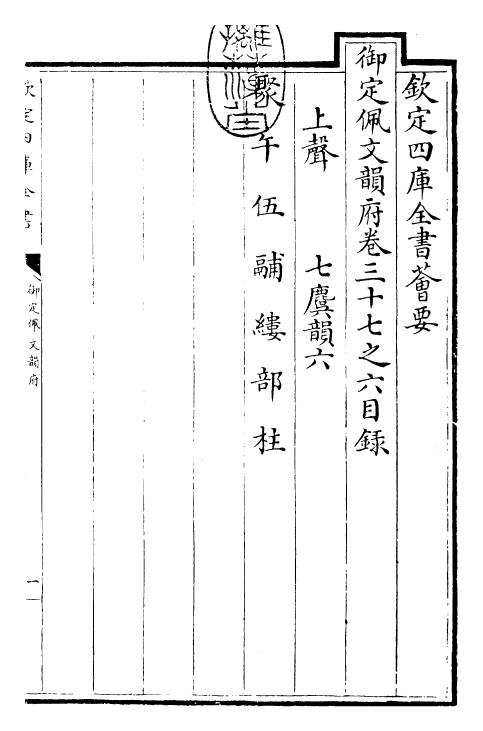 欽定四庫全書薈要
御定佩文韻府卷三十七之六目録
上聲　七麌韻六
聚 午 伍 鬴 縷 部 柱
欽定四庫全書
御定佩文韻府
一